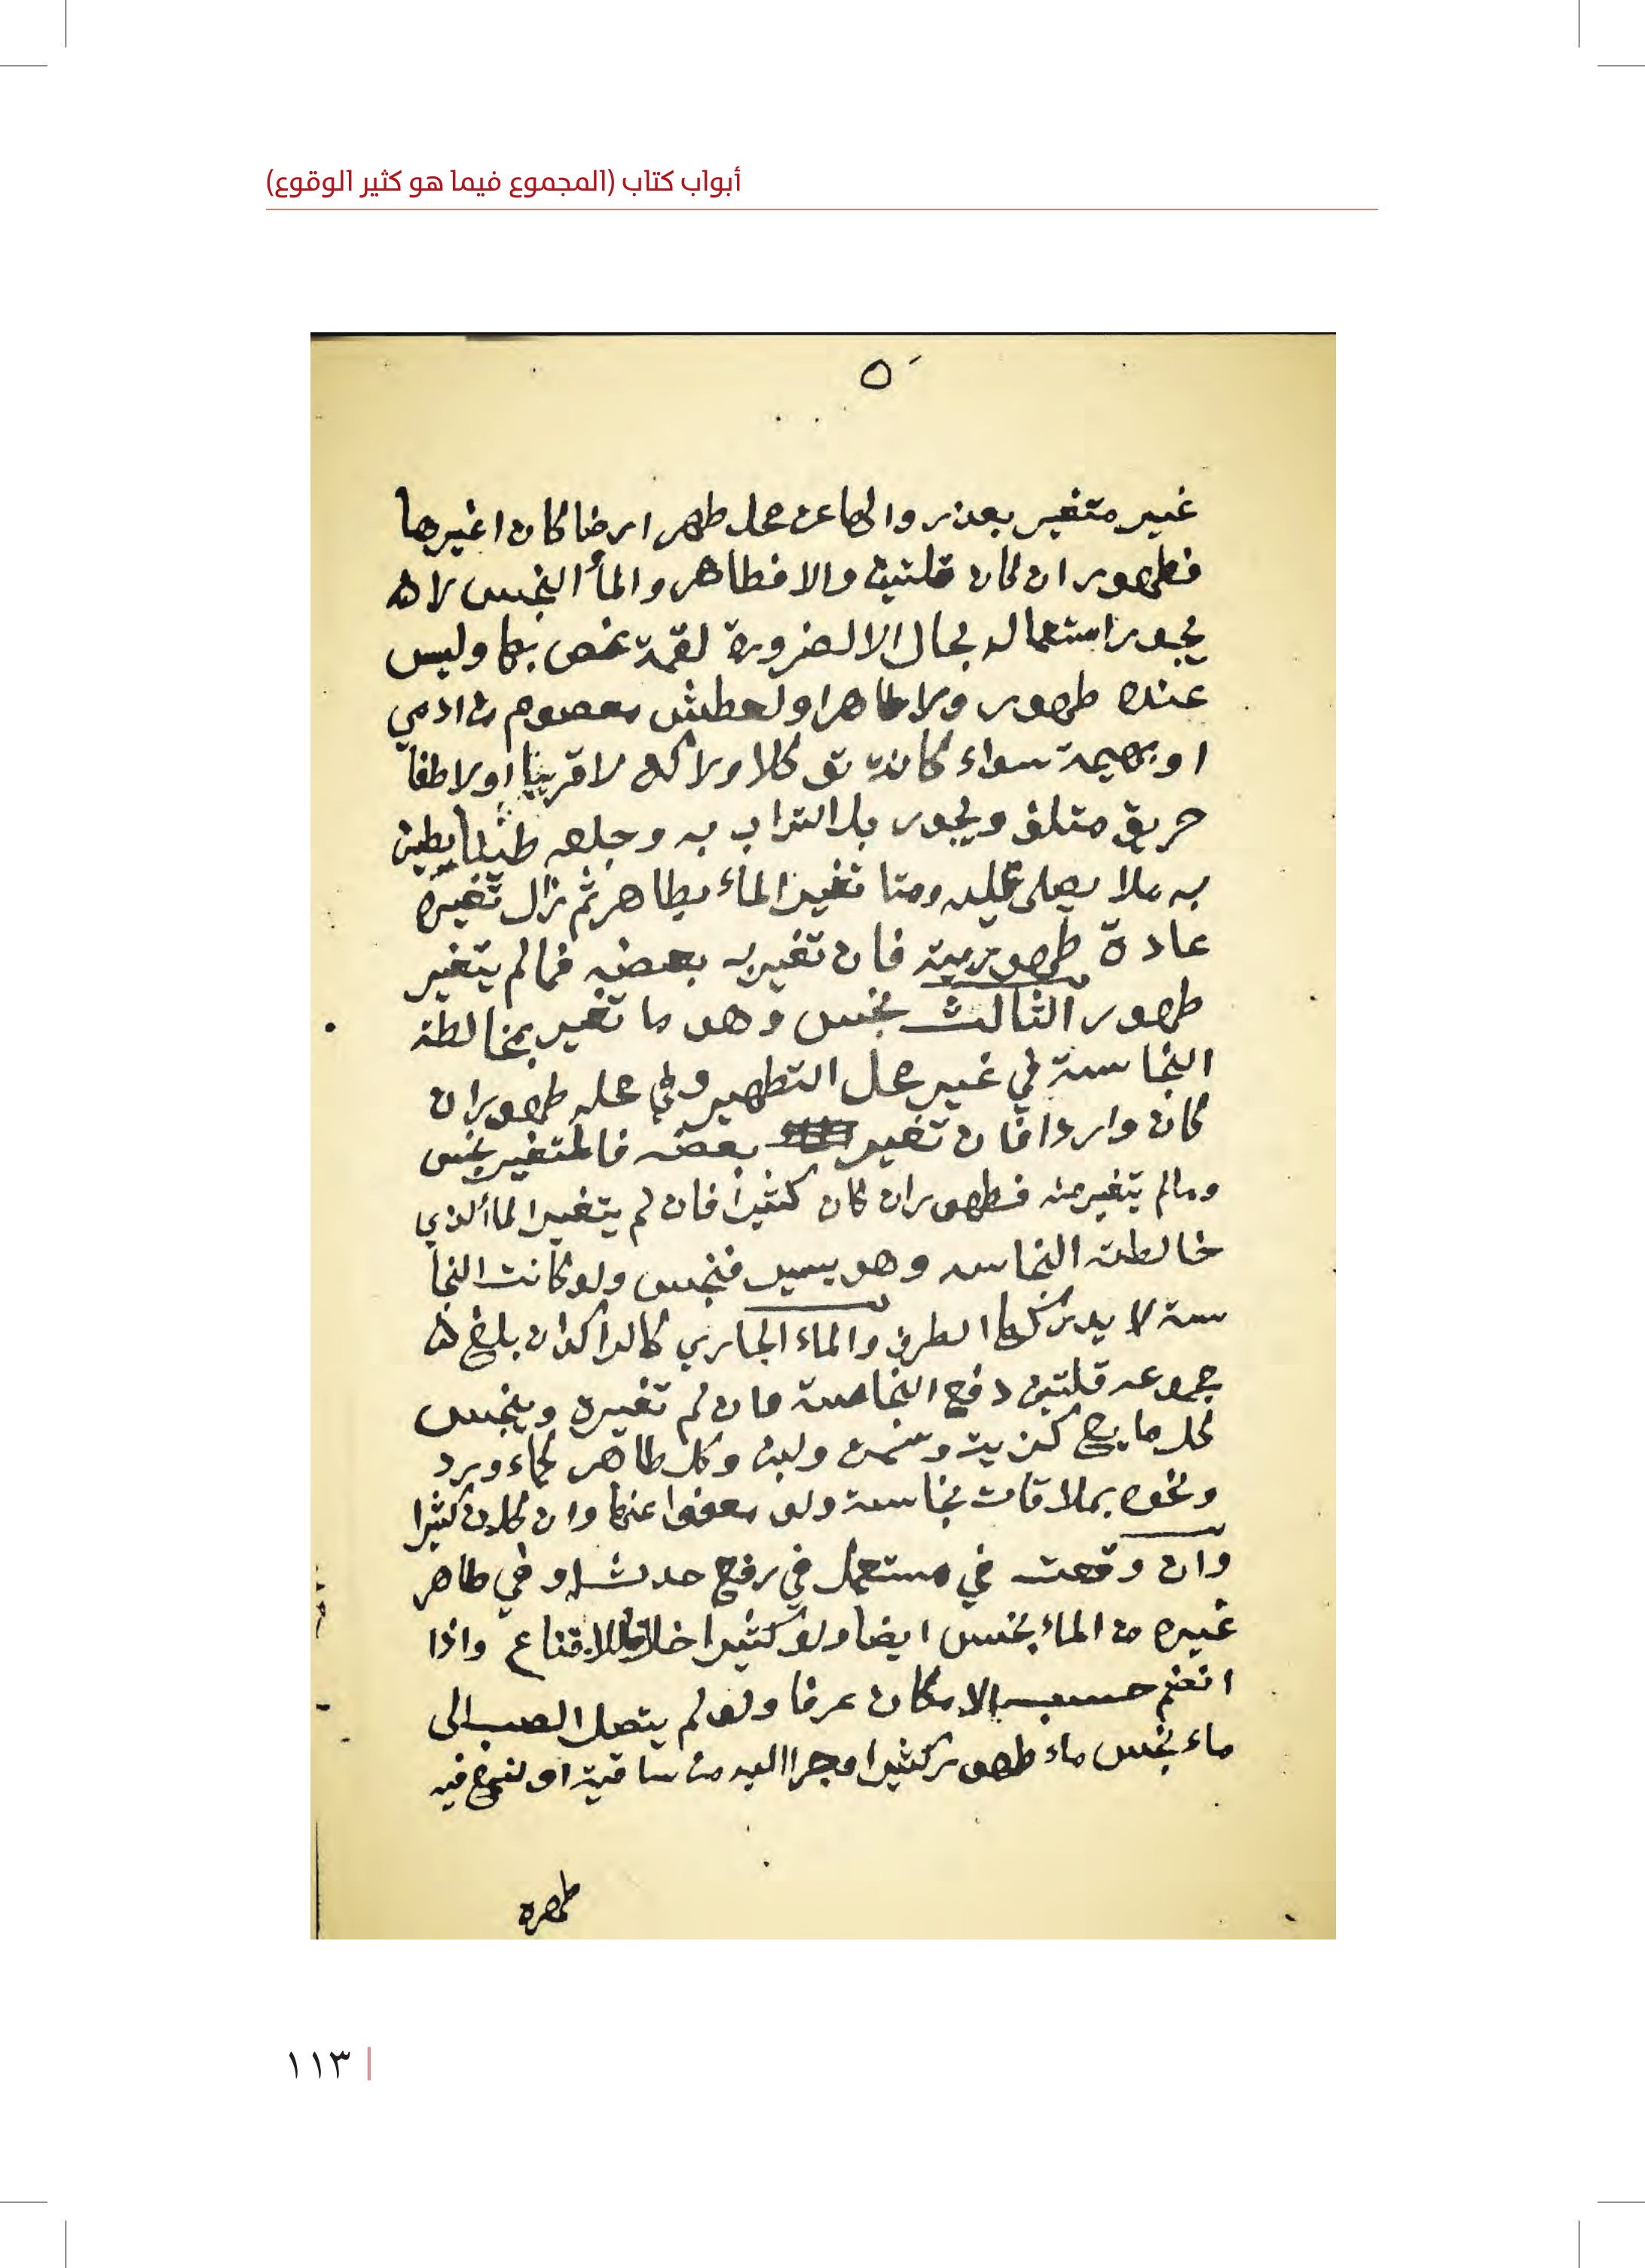 أبواب كتاب (المجموع فيما هو كثير الوقوع)
٥
غير متغير بعد زوالها عن محل طهر ارضا كان اغيرها
فطهور ان كان قلتين والا فطاهر والمأ النجس لا
يجوز استعماله بحال الا لضرورة لقمة غص بها وليس
عنده طهور ولا طاهر او لعطش معصوم من ادمي
او بهيمة سواء كانت توكل او لا لا قربها او لا طفأ
حريق متلف ويجوز بل التراب به وجعله طينا يطين
به ملا يصلى عليه ومتا تغير المأ بطاهر ثم زال تغيره
عادة طهوريته فان تغير به بعضه فمالم يتغير
طهور الثالث نجس وهو ما تغير بمخالطة
النجاسة في غير محل التطهير وفي محله طهور ان
كان واردا فان تغير بعضه فالمتغير نجس
ومالم يتغير منه فطهور ان كان كثيرا فان لم يتغير المأ الذي
خالطته النجاسه وهو يسير فنجس ولو كانت النجا
سة لا يدركها الطرف والماء الجاري كالراكد ان بلغ
مجموعه قلتين دفع النجاسة فان لم تغيره وينجس
كل مايع كزيت وسمن ولبن وكل طاهر كماء ورد
ونحوه بملاقات نجاسة ولو معفوا عنها وان كان كثيرا
وان وقعت في مستعمل في رفع حدث او في طاهر
غيره من الماء نجس ايضا ولو كثيرا خلافا للاقناع واذا
انضم حسب الامكان عرفا ولو لم يتصل الصب الى
ماء نجس ماء طهور كثير او جرا اليه من ساقية او نبع فيه
طهره
١١٣